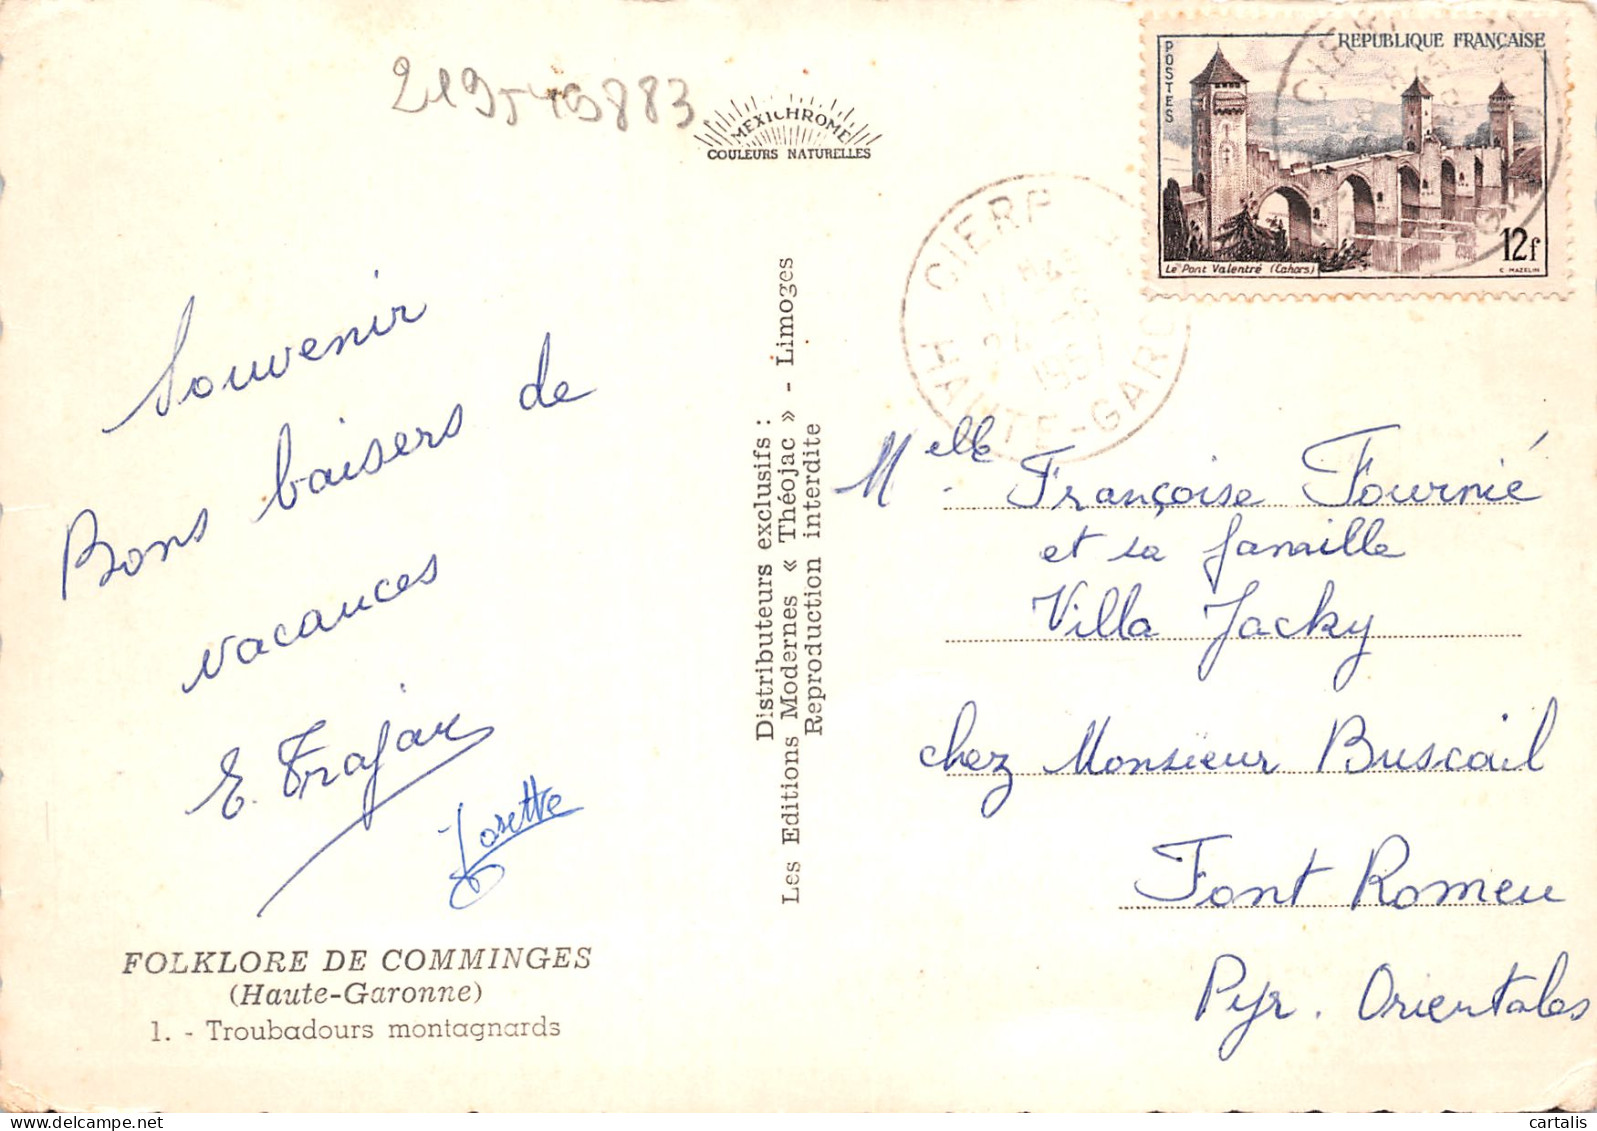 219549883
MEXICHROME
COULEURS NATURELLES
REPUBLIQUE FRANÇAISE
POSTES
12f
Le Pont Valentré (Cahors)
C. MAZELIN
CIERP
1957
HAUTE-GARO
Souvenir
Bons baisers de
vacances
E. Trajan
Josette
FOLKLORE DE COMMINGES
(Haute-Garonne)
1. - Troubadours montagnards
Distributeurs exclusifs :
Les Editions Modernes « Théojac » - Limoges
Reproduction interdite
Melle. Françoise Fournié
et sa famille
Villa Jacky
chez Monsieur Buscail
Font Romeu
Pyr. Orientales
cartalis